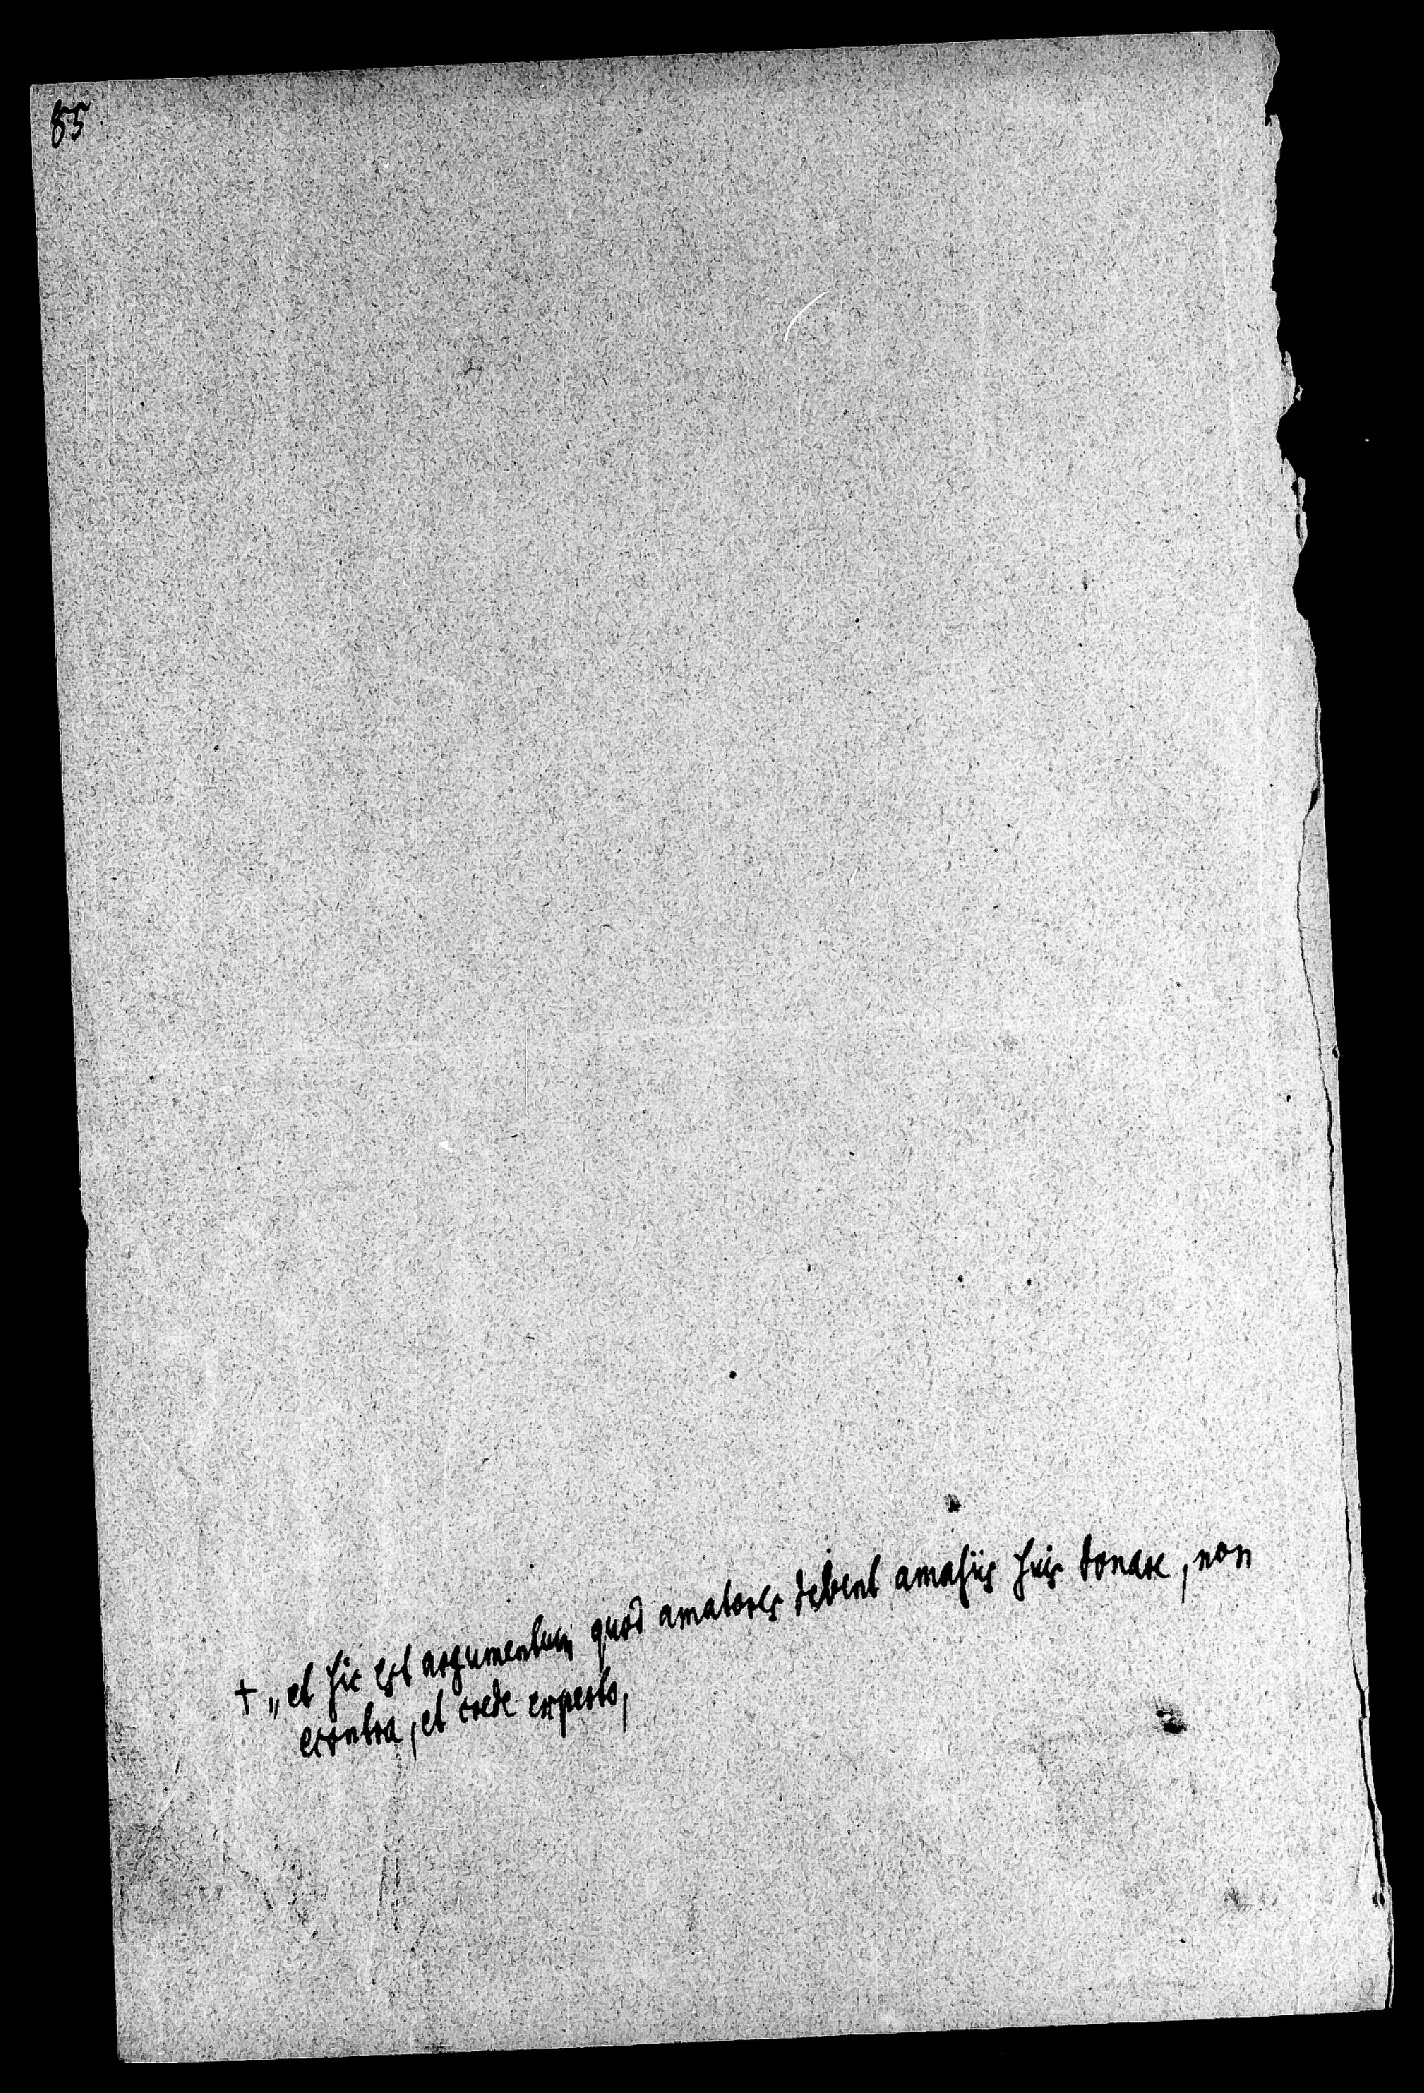 85
† „et hic est argumentum quod amatores debent amasiis suis donare, non
econtra, et crede experto,